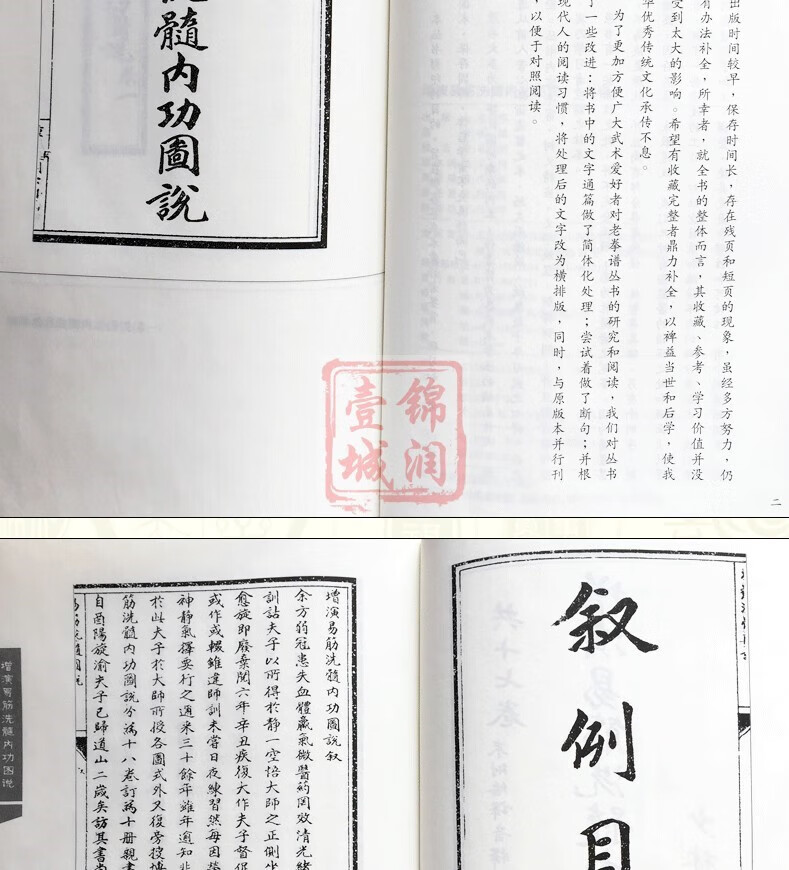 出版时间较早，保存时间长，存在残页和短页的现象，虽经多方努力，仍
有办法补全，所幸者，就全书的整体而言，其收藏、参考、学习价值并没
受到太大的影响。希望有收藏完整者鼎力补全，以裨益当世和后学，使我
华优秀传统文化承传不息。
为了更加方便广大武术爱好者对老拳谱丛书的研究和阅读，我们对丛书
了一些改进：将书中的文字通篇做了简体化处理；尝试着做了断句；并根
现代人的阅读习惯，将处理后的文字改为横排版，同时，与原版本并行刊
，以便于对照阅读。
二
洗髓内功圖説
錦润
壹城
叙例目
增演易筋洗髓内功圖説叙
余方弱冠患失血體羸氣微醫药罔效清光緒
訓詁夫子以所得於静一空悟大師之正側坐
愈旋即廢棄閲六年辛丑疾復大作夫子督
或作或輟雖違師訓未嘗日夜練習然每因
神静氣擇要行之通来三十餘年雖年逾知非
於此夫子於大師所授各圖式外又復旁授
筋洗髓内功圖説分為十八卷訂為十册親書
自酉陽旋渝夫子已歸道山二歲矣訪其書
增演易筋洗髓内功图说